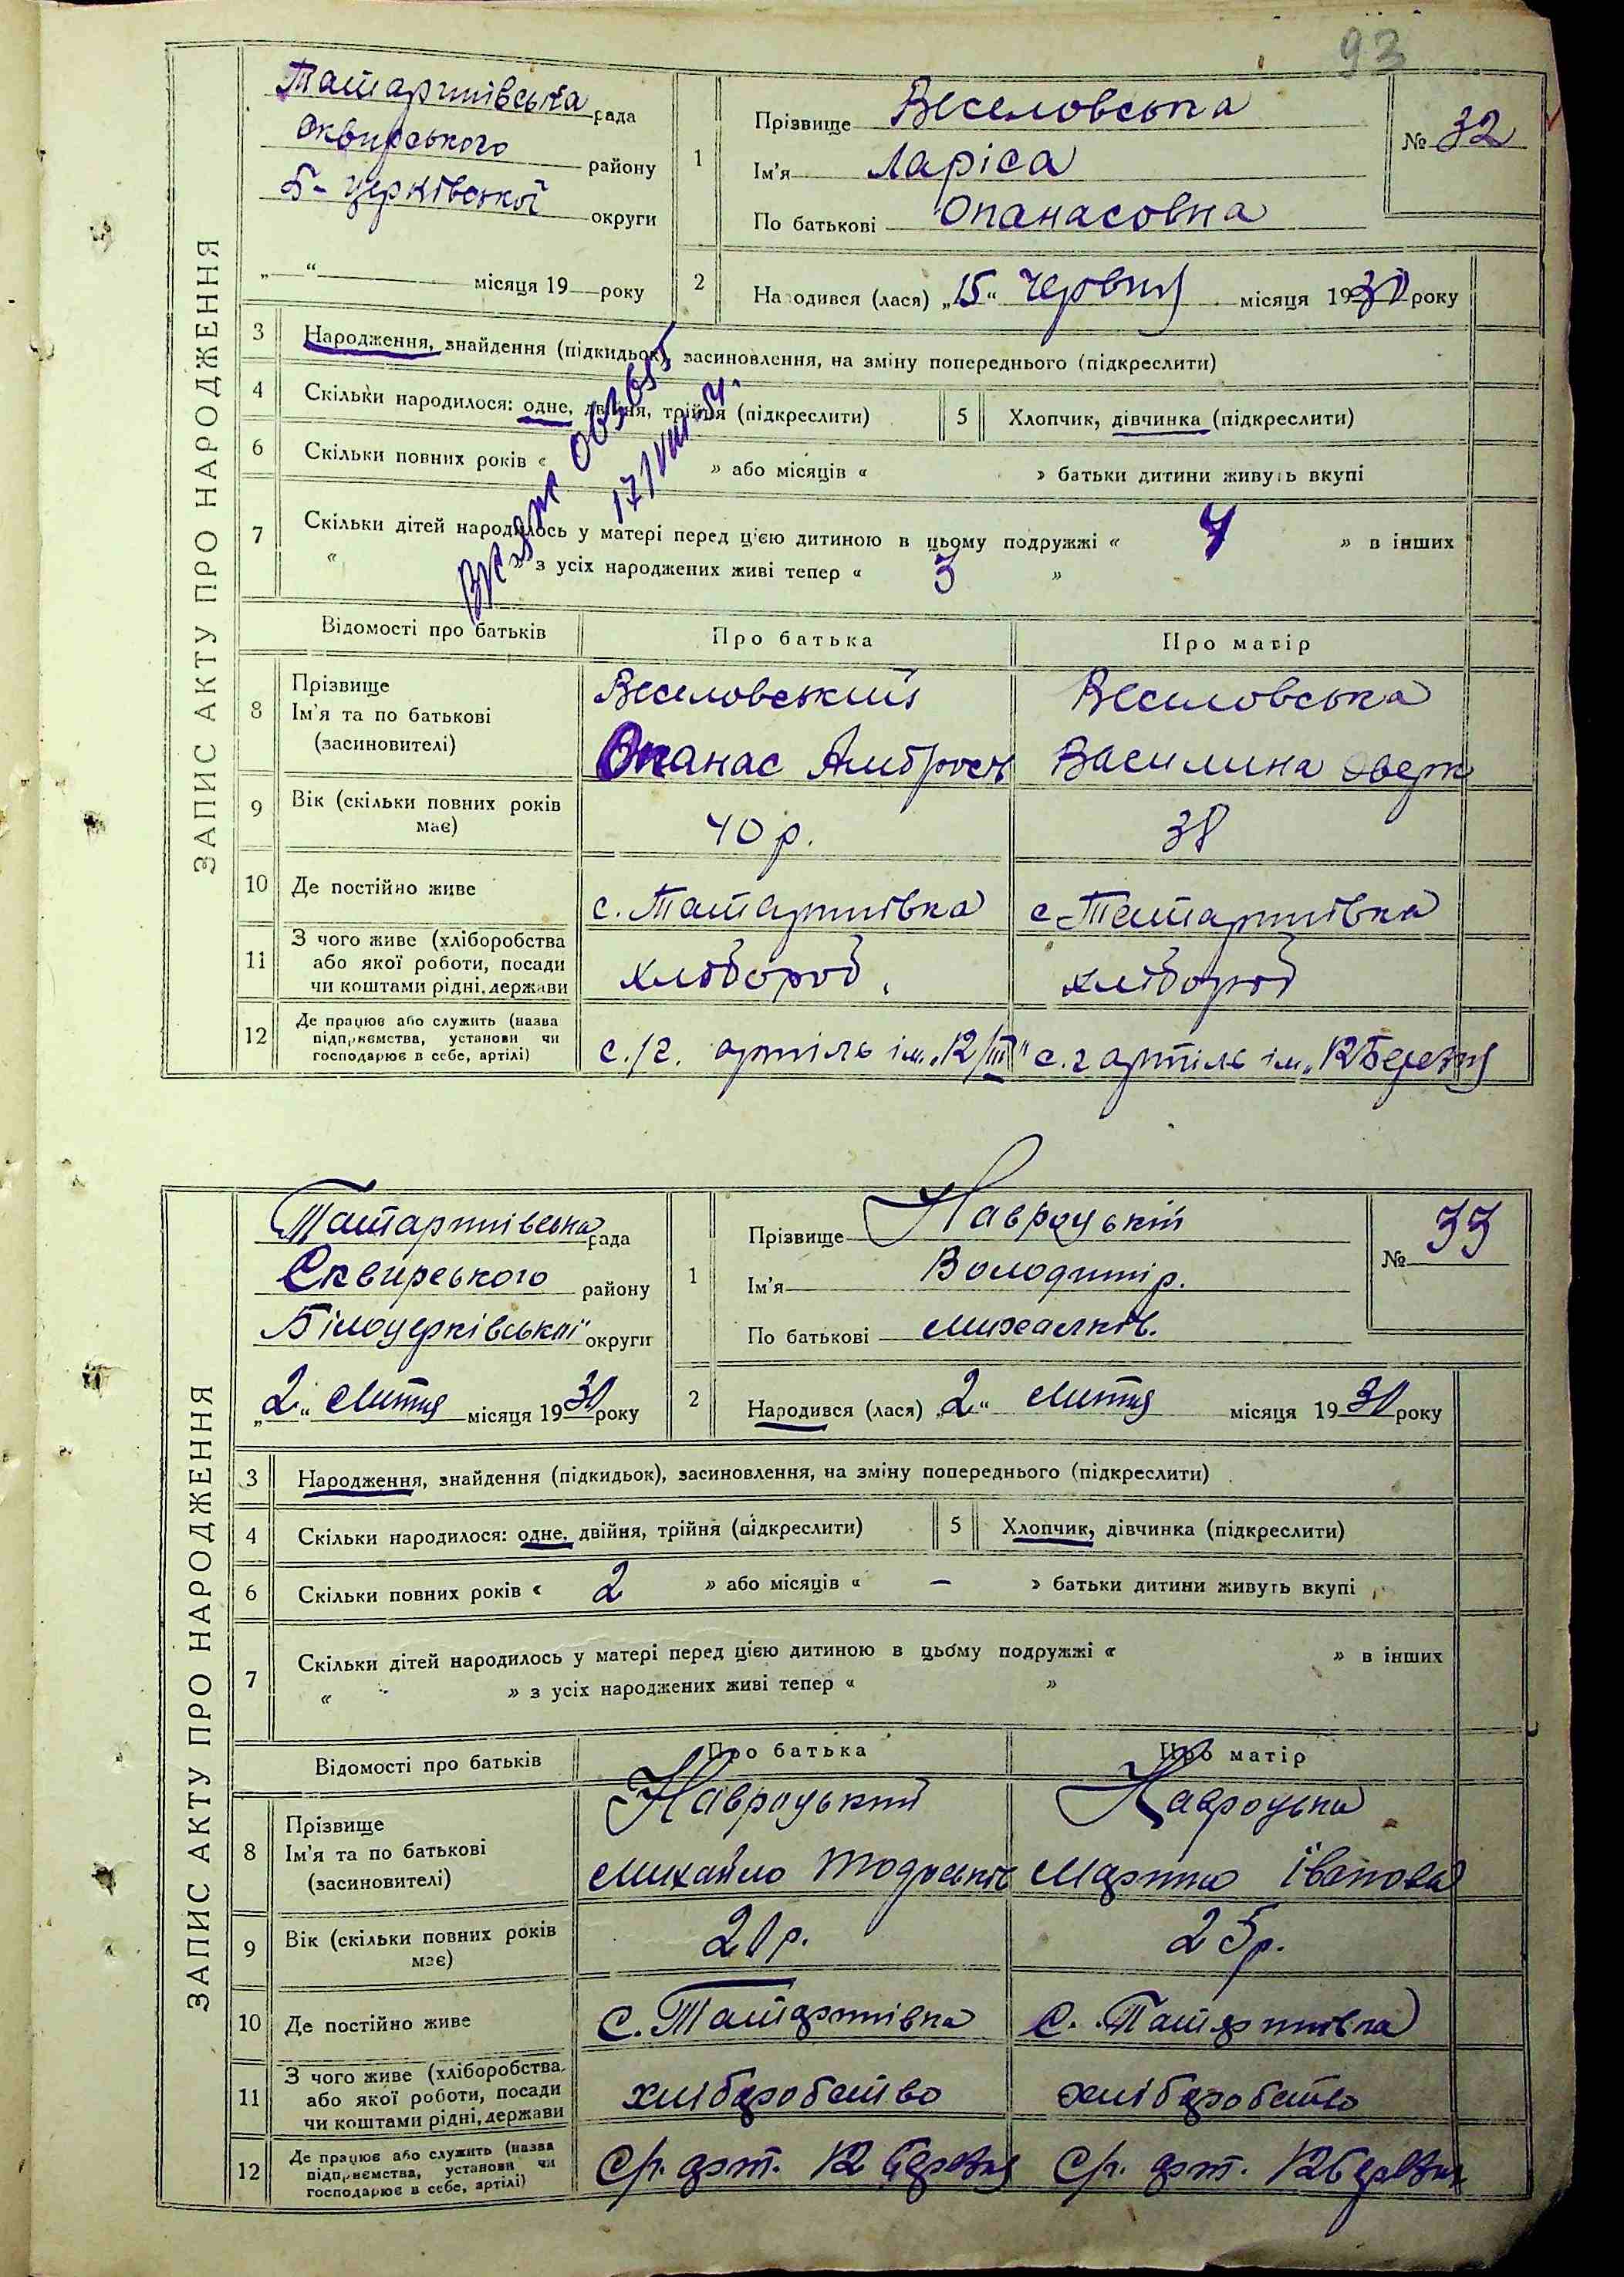 93
ЗАПИС АКТУ ПРО НАРОДЖЕННЯ
Татаринівська рада
Сквирського району
Б-церківської округи
„ “ місяця 19 року
1
Прізвище Веселовська
Ім'я Ларіса
По батькові Опанасовна
№ 32
2
Народився (лася) „15“ Червня місяця 1930 року
3 Народження, знайдення (підкидьок), засиновлення, на зміну попереднього (підкреслити)
4 Скільки народилося: одне, двійня, трійня (підкреслити)
5 Хлопчик, дівчинка (підкреслити)
6 Скільки повних років « » або місяців « » батьки дитини живуть вкупі
7 Скільки дітей народилось у матері перед цією дитиною в цьому подружжі « 4 » в інших
« » з усіх народжених живі тепер « 3 »
Відомості про батьків Про батька Про матір
8 Прізвище
Ім'я та по батькові
(засиновителі)
Веселовський
Опанас
Веселовська
Василина
9 Вік (скільки повних років
має)
40 р.
38
10 Де постійно живе
с. Татаринівка
с Татаринівка
11 З чого живе (хліборобства
або якої роботи, посади
чи коштами рідні, держави
хлібороб.
хлібороб
12 Де працює або служить (назва
підприємства, установи чи
господарює в себе, артілі)
с./г. артіль ім. „12/III“
с. г артіль ім. „12 Березня
ЗАПИС АКТУ ПРО НАРОДЖЕННЯ
Татаринівська рада
Сквирського району
Білоцерківської округи
„2“ Липня місяця 1930 року
1
Прізвище Навроцький
Ім'я Володимір.
По батькові Михайлів.
№ 33
2
Народився (лася) „2“ Липня місяця 1930 року
3 Народження, знайдення (підкидьок), засиновлення, на зміну попереднього (підкреслити)
4 Скільки народилося: одне, двійня, трійня (підкреслити)
5 Хлопчик, дівчинка (підкреслити)
6 Скільки повних років « 2 » або місяців « – » батьки дитини живуть вкупі
7 Скільки дітей народилось у матері перед цією дитиною в цьому подружжі « » в інших
« » з усіх народжених живі тепер « »
Відомості про батьків Про батька Про матір
8 Прізвище
Ім'я та по батькові
(засиновителі)
Навроцький
Михайло
Навроцька
Іванова
9 Вік (скільки повних років
має)
25 р.
10 Де постійно живе
с. Татаринівка
с. Татаринівка
11 З чого живе (хліборобства
або якої роботи, посади
чи коштами рідні, держави
хліборобство
хліборобство
12 Де працює або служить (назва
підприємства, установи чи
господарює в себе, артілі)
С/г. арт. 12 березня
С/г. арт. 12 березня